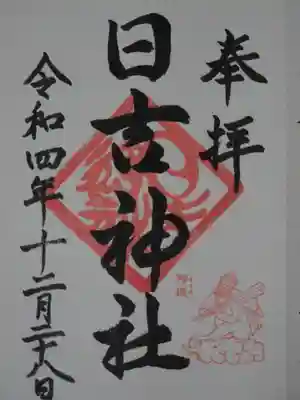 奉拝
日吉神社
令和四年十二月二十八日